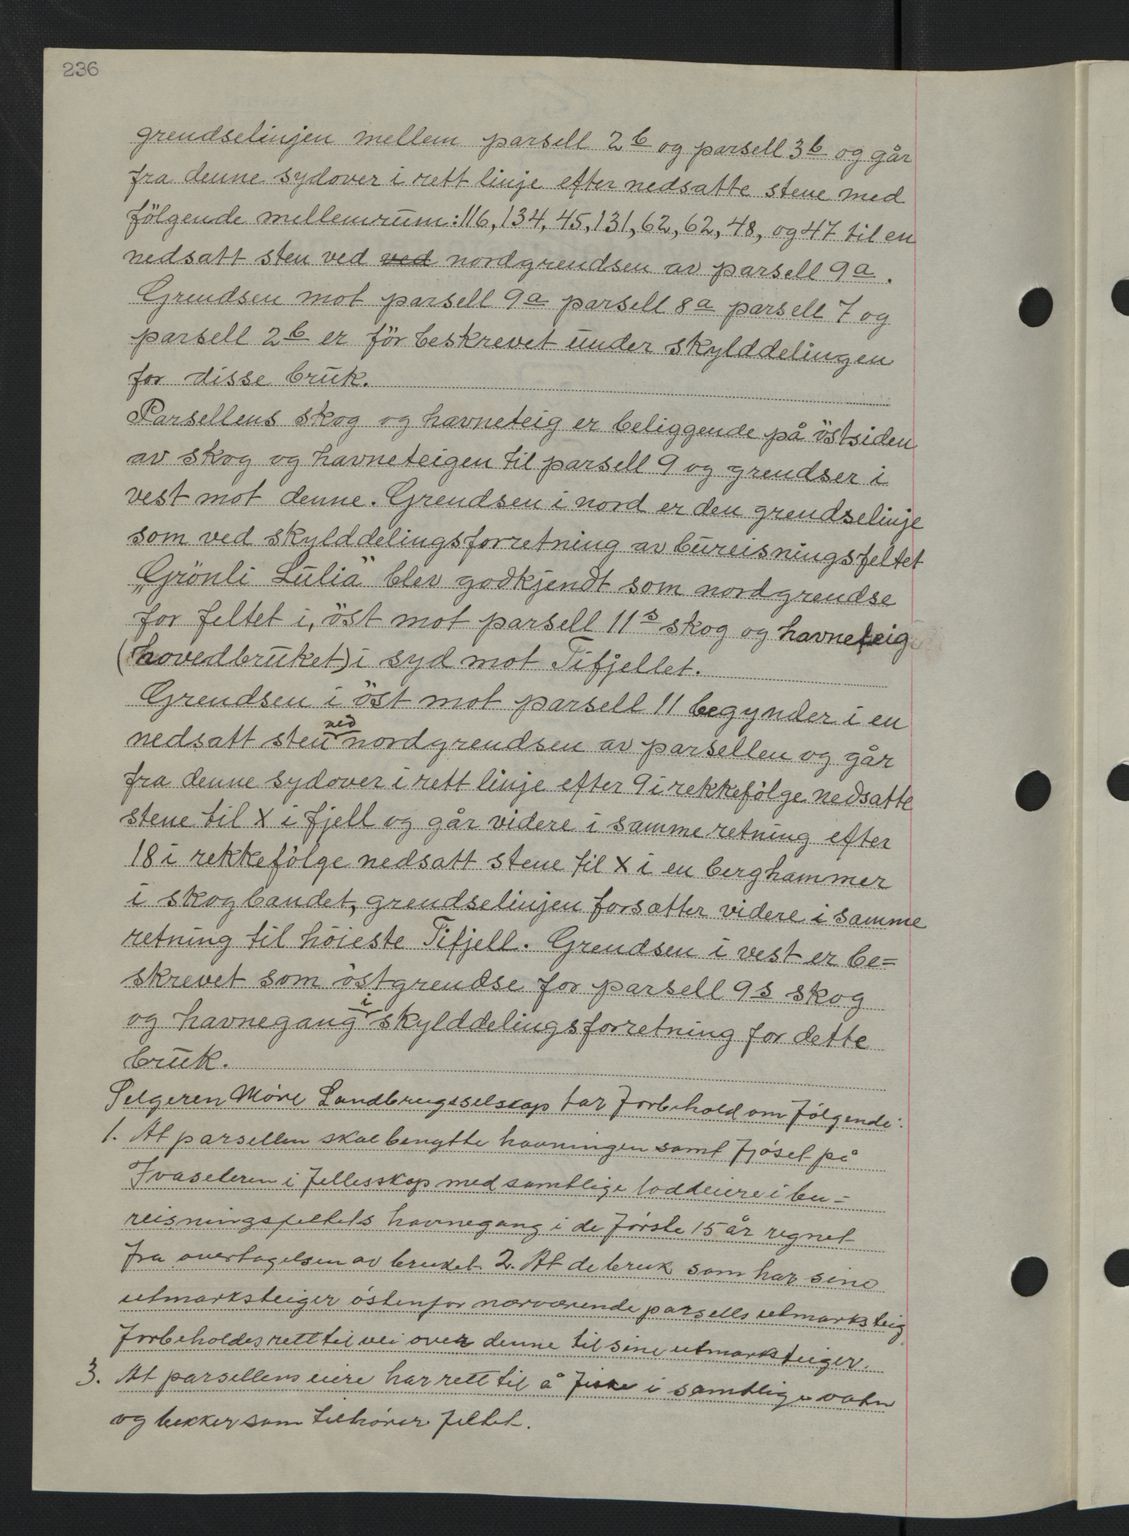 236
grendselinjen mellem parsell 2b og parsell 3b og går
fra denne sydover i rett linje efter nedsatte stene med
fölgende mellemrum: 116, 134, 45, 131, 62, 62, 48, og 47 til en
nedsatt sten ved ved nordgrendsen av parsell 9a.
Grendsen mot parsell 9a parsell 8a parsell 7 og
parsell 2b er för beskrevet under skylddelingen
for disse bruk.
Parsellens skog og havneteig er beliggende på östsiden
av skog og havneteigen til parsell 9 og grendser i
vest mot denne. Grendsen i nord er den grendselinje
som ved skylddelingsforretning av bureisningsfeltet
„Grönli Lulia" blev godkjendt som nordgrendse
for feltet i, öst mot parsell 11s skog og havneteig
(hovedbruket) i syd mot Tifjellet.
Grendsen i öst mot parsell 11 begynder i en
nedsatt sten ved nordgrendsen av parsellen og går
fra denne sydover i rett linje efter 9 i rekkefölge nedsatte
stene til X i fjell og går videre i samme retning efter
18 i rekkefölge nedsatt stene til X i en berghammer
i skogbandet, grendselinjen forsatter videre i samme
retning til höieste Tifjell. Grendsen i vest er be=
skrevet som östgrendse for parsell 9s skog
og havnegang i skylddelingsforretning for dette
bruk.
Selgeren Møre Landbrugsselskap tar forbehold om følgende:
1. At parsellen skal benytte havningen samt fjøset på
Ivaseteren i fellesskap med samtlige loddeiere i bu=
reisningsfeltets havnegang i de første 15 år regnet
fra overtagelsen av bruket. 2. At de bruk som har sine
utmarksteiger østenfor nærværende parsells utmarksteig
forbeholdes rett til vei over denne til sine utmarksteiger.
3. At parsellens eiere har rett til å fiske i samtlige vatn
og bekker som tilhører feltet.